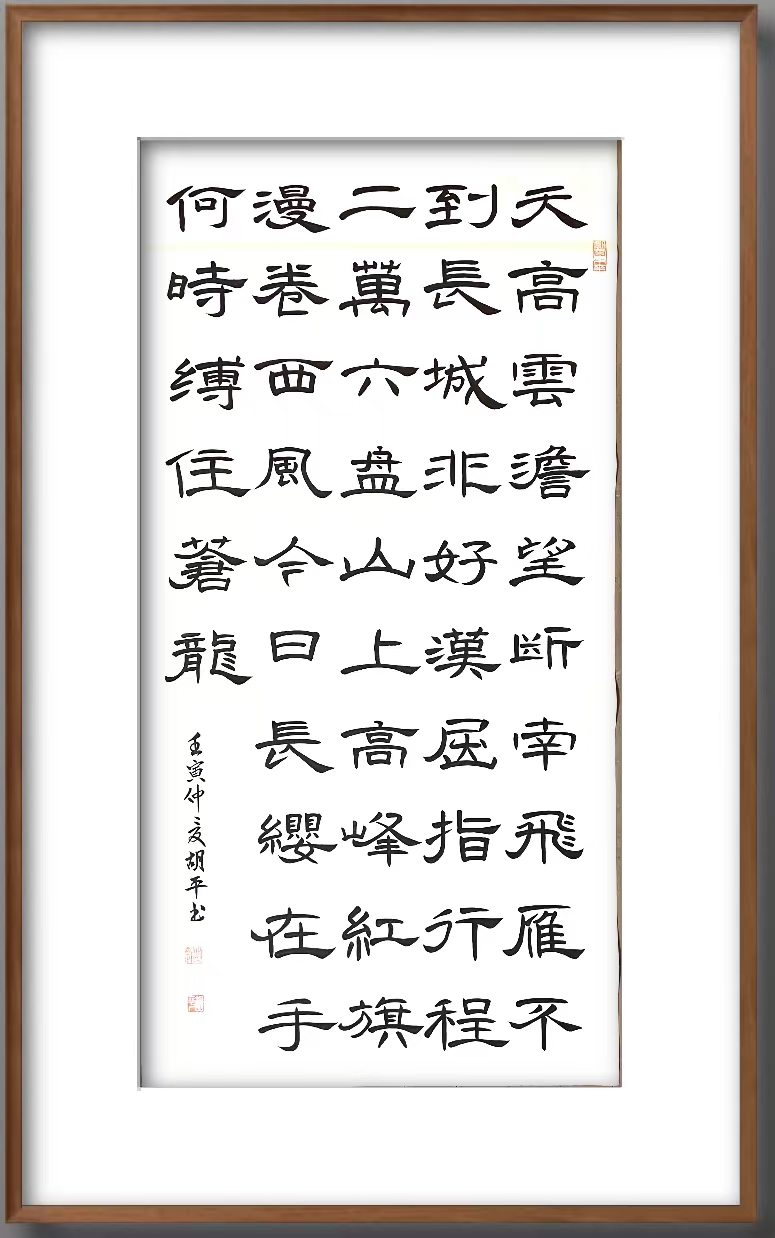 天高雲澹望断南飛雁不
到長城非好漢屈指行程
二萬六盘山上高峰紅旗
漫卷西風今日長纓在手
何時缚住蒼龍
壬寅仲夏胡平书